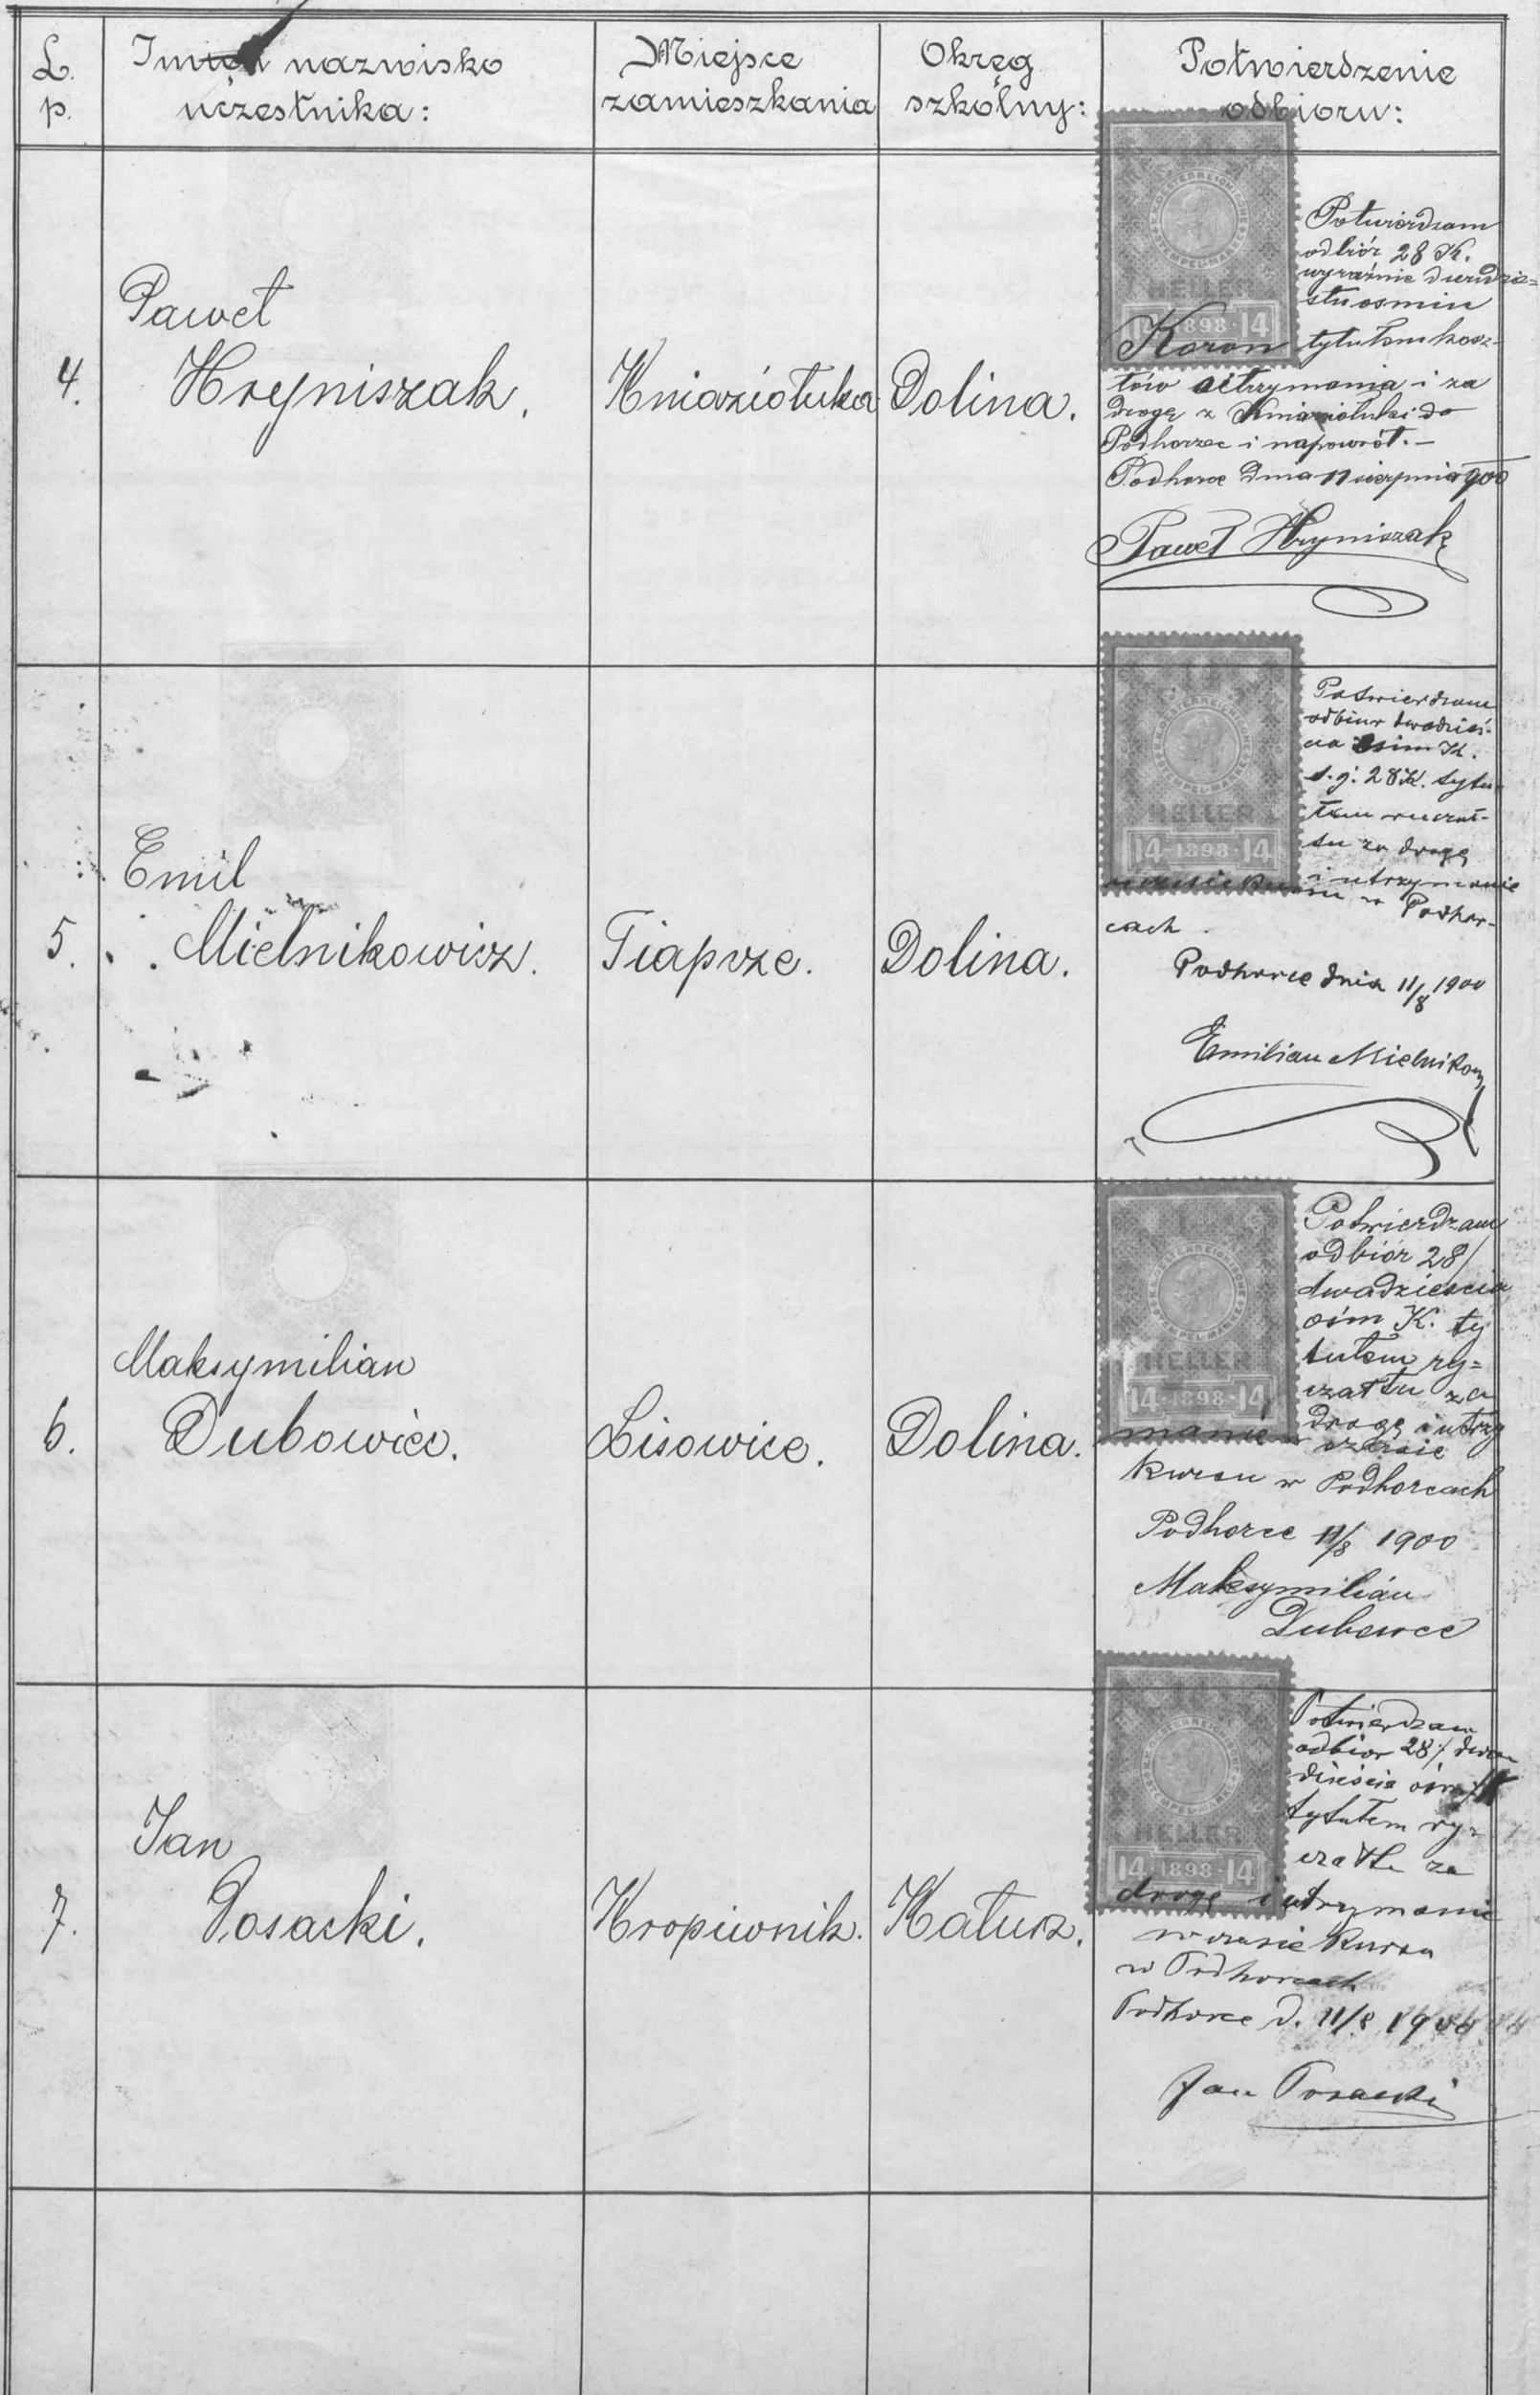 L. p.
Imię i nazwisko
uczestnika:
Miejsce
zamieszkania
Okręg
szkólny:
Potwierdzenie
odbioru:
4.
Paweł
Hryniszak.
Kniaziołuka
Dolina.
K.K. OESTERREICHISCHE
STEMPEL-MARKE
HELLER
14 · 1898 · 14
Potwierdzam
odbiór 28 K.
wyraźnie dwudzie=
stu ośmiu
Koron tytułem kosz-
tów utrzymania i za
drogę z Kniaziołuki do
Podhorzec i napowrót.-
Podhorce dnia 11 sierpnia 900
Paweł Hryniszak
5.
Emil
Mielnikowicz.
Tiapcze.
Dolina.
K.K. OESTERREICHISCHE
STEMPEL-MARKE
HELLER
14 · 1898 · 14
Potwierdzam
odbiur dwadzieś-
cia osim K.
t.j. 28 K. tytu-
łem ryczał-
tu za drogę
i utrzymanie
w czasie kursu w Podhor-
cach
Podhorce dnia 11/8 1900
Emilian Mielnikow
6.
Maksymilian
Dubowiec.
Lisowice.
Dolina.
K.K. OESTERREICHISCHE
STEMPEL-MARKE
HELLER
14 · 1898 · 14
Potwierdzam
odbiór 28/
dwadzieścia
ośm K. ty
tułem ry=
czałtu za
drogę i utrzy
manie w czasie
kursu w Podhorcach
Podhorce 11/8 1900
Maksymilian
Dubowec
7.
Jan
Posacki.
Kropiwnik.
Kałusz.
K.K. OESTERREICHISCHE
STEMPEL-MARKE
HELLER
14 · 1898 · 14
Potwierdzam
odbior 28/ dwa
dzieścia ośm K
tytułem ry-
czałtu za
drogę i utrzymanie
w czasie kursu
w Podhorcach
Podhorce d. 11/8 1900
Jan Posacki